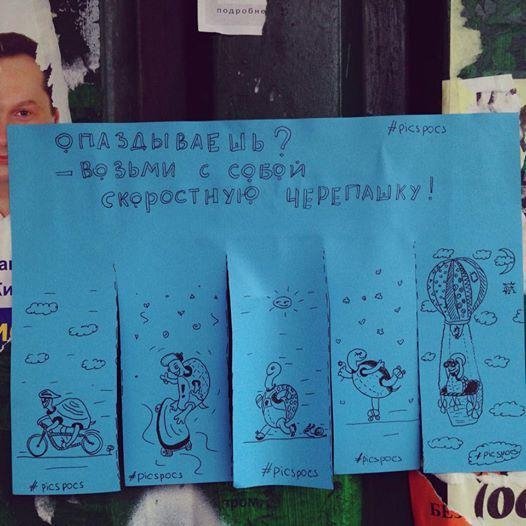 подробне
#picspocs
ОПАЗДЫВАЕШЬ?
– ВОЗЬМИ С СОБОЙ
СКОРОСТНУЮ ЧЕРЕПАШКУ!
#picspocs
#picspocs
#picspocs
#picspocs
#picspocs